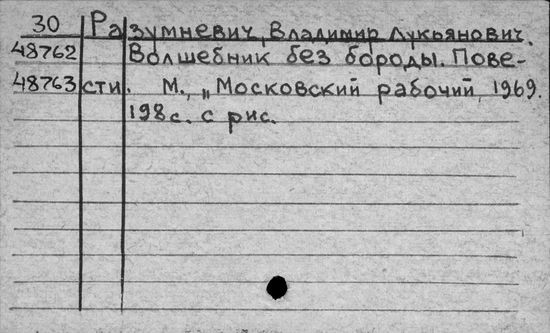 30 Разумневич, Владимир Лукьянович.
48762 Волшебник без бороды. Пове-
48763 сти. М., „Московский рабочий, 1969.
198 с. с рис.